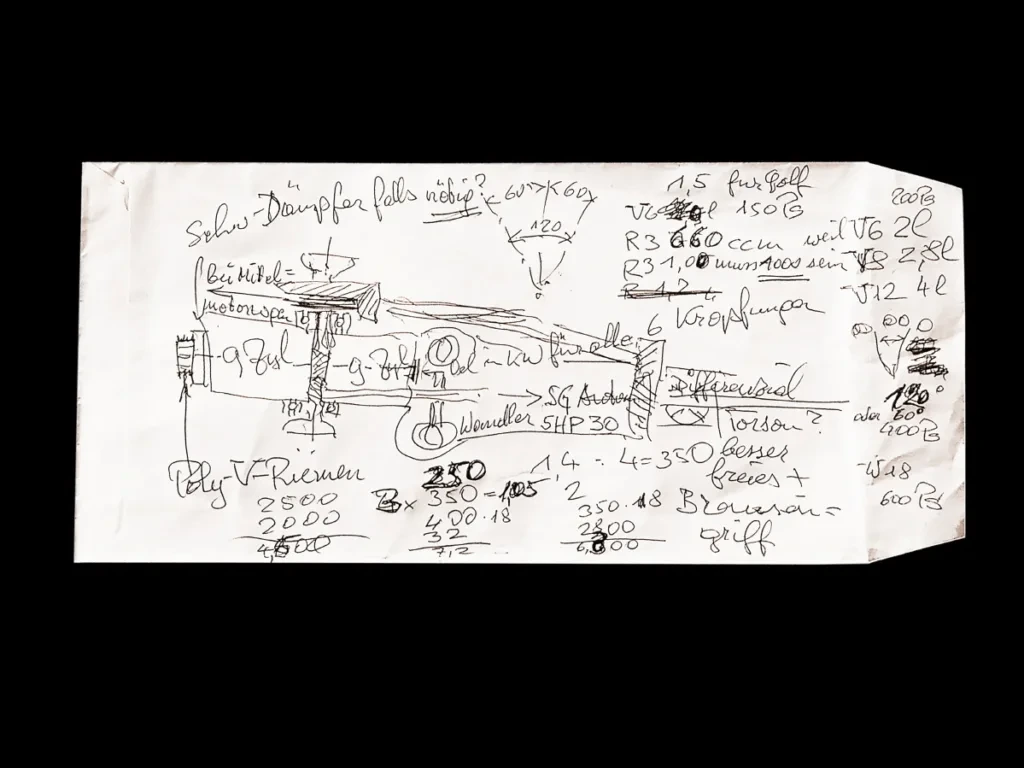 Schw-Dämpfer falls nötig?
60° 60°
120
1,5 für Golf
V6 l 150 PS
R3 660 ccm weil V6 2l
R3 1,00 muss 1000 sein V8 2,8l
R 1,2
V12 4l
200 PS
bei Mittel=
motorwagen
6 Kröpfungen
9 Zyl
9-Zyl
Öl in KW für alle
SG
Wandler 5HP30
Differenzial
Torson?
120°
oder 60°
400 PS
Poly-V-Riemen
250
14 : 4=350 besser
freies +
Brawson=
griff
W18
600 PS
2500
2000
350 = 1,05
400.18
32
7,2
2
350.18
2800
6,300